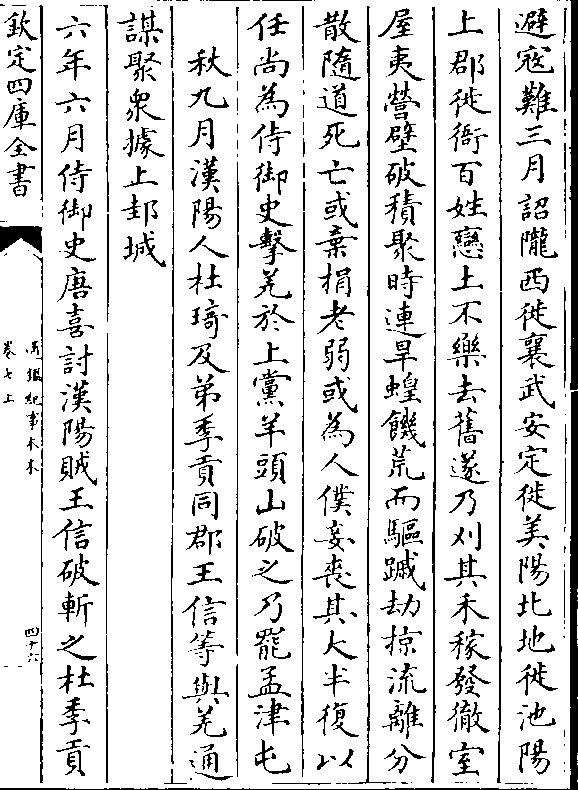 避宼難三月詔隴西徙襄武安定徙美陽北地徙池陽
上郡徙衙百姓戀土不樂去舊遂乃刈其禾稼發徹室
屋夷營壁破積聚時連旱蝗饑荒而驅蹙劫掠流離分
散隨道死亡或棄捐老弱或為人僕妾喪其大半復以
任尚為侍御史擊羌於上黨羊頭山破之乃罷孟津屯
秋九月漢陽人杜琦及弟季貢同郡王信等與羌通
謀聚衆據上邽城
六年六月侍御史唐喜討漢陽賊王信破斬之杜季貢
欽定四庫全書
通鑑紀事本末
卷七上
四十六